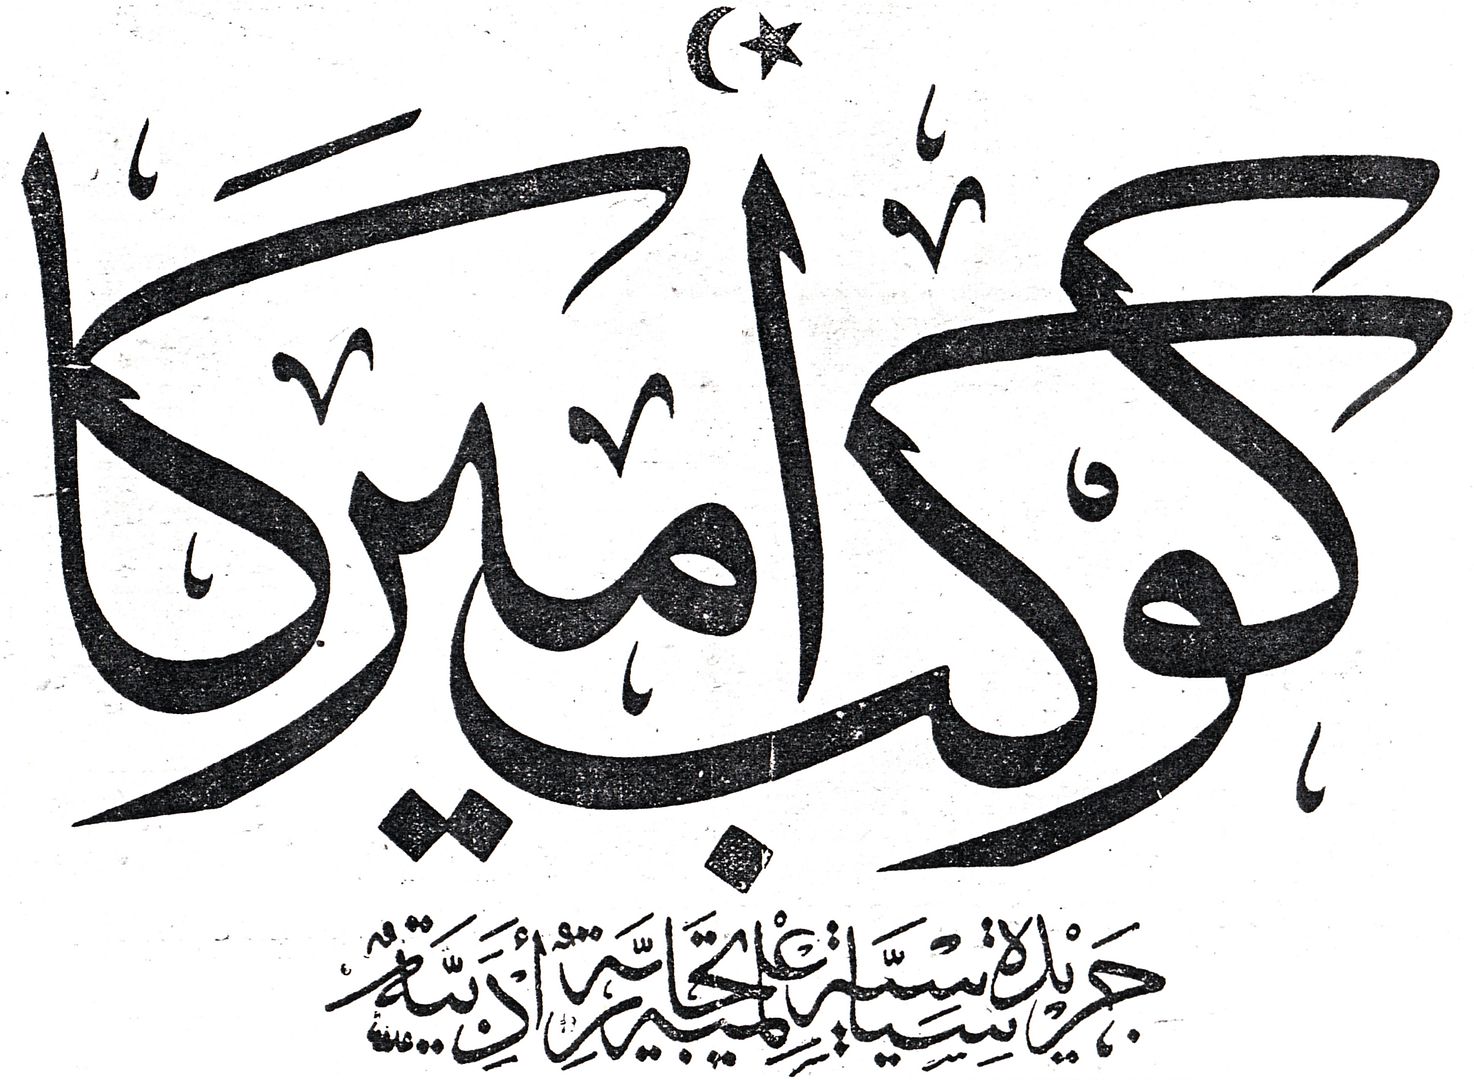 كوكب اميركا
جريدة سياسية علمية تجارية أدبية